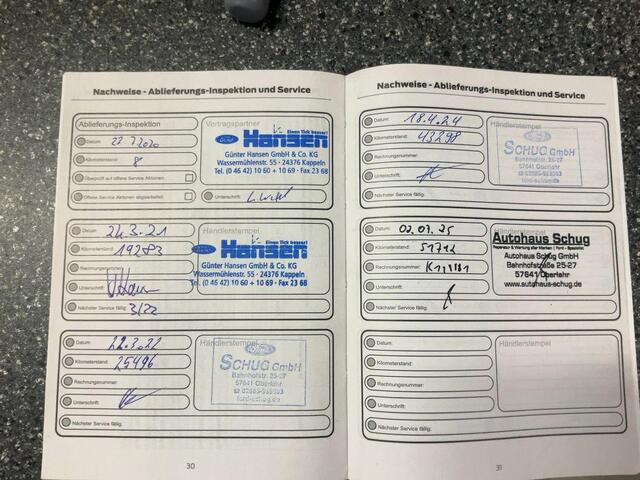 Nachweise - Ablieferungs-Inspektion und Service
Ablieferungs-Inspektion
Datum: 22 7 2020
Kilometerstand: 8
Überprüft auf offene Service Aktionen:
Offene Service Aktionen abgearbeitet:
Vertragspartner
Einen Tick besser!
Ford Hansen
Günter Hansen GmbH & Co. KG
Wassermühlenstr. 55 - 24376 Kappeln
Tel. (0 46 42) 10 60 + 10 69 · Fax 23 68
Unterschrift:
Datum: 24.3.21
Kilometerstand: 19283
Rechnungsnummer:
Unterschrift:
Nächster Service fällig: 3/22
Händlerstempel
Einen Tick besser!
Ford Hansen
Günter Hansen GmbH & Co. KG
Wassermühlenstr. 55 - 24376 Kappeln
Tel. (0 46 42) 10 60 + 10 69 · Fax 23 68
Datum: 22.3.22
Kilometerstand: 25496
Rechnungsnummer:
Unterschrift:
Nächster Service fällig:
Händlerstempel
Ford
SCHUG GmbH
Bahnhofstr. 25-27
57641 Oberlahr
ford-schug.de
30
Nachweise - Ablieferungs-Inspektion und Service
Datum: 18.4.24
Kilometerstand: 43298
Rechnungsnummer:
Unterschrift:
Nächster Service fällig:
Händlerstempel
Ford
SCHUG GmbH
Bahnhofstr. 25-27
57641 Oberlahr
ford-schug.de
Datum: 02.07.25
Kilometerstand: 51712
Rechnungsnummer:
Unterschrift:
Nächster Service fällig:
Händlerstempel
Autohaus Schug
Reparatur & Wartung aller Marken | Ford - Spezialist
Autohaus Schug GmbH
Bahnhofstraße 25-27
57641 Oberlahr
www.autohaus-schug.de
Datum:
Kilometerstand:
Rechnungsnummer:
Unterschrift:
Nächster Service fällig:
Händlerstempel
31